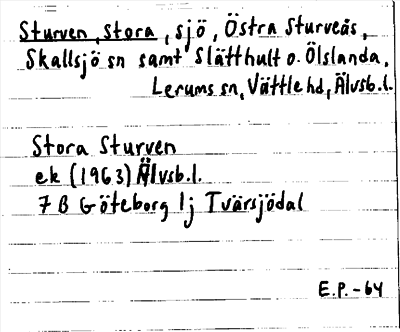 Sturven, Stora, sjö, Östra Sturveås,
Skallsjö sn samt Slätthult o. Ölslanda,
Lerums sn, Vättle hd, Älvsb.l.
Stora Sturven
ek (1963) Älvsb.l.
7 B Göteborg 1j Tvärsjödal
E.P. -64